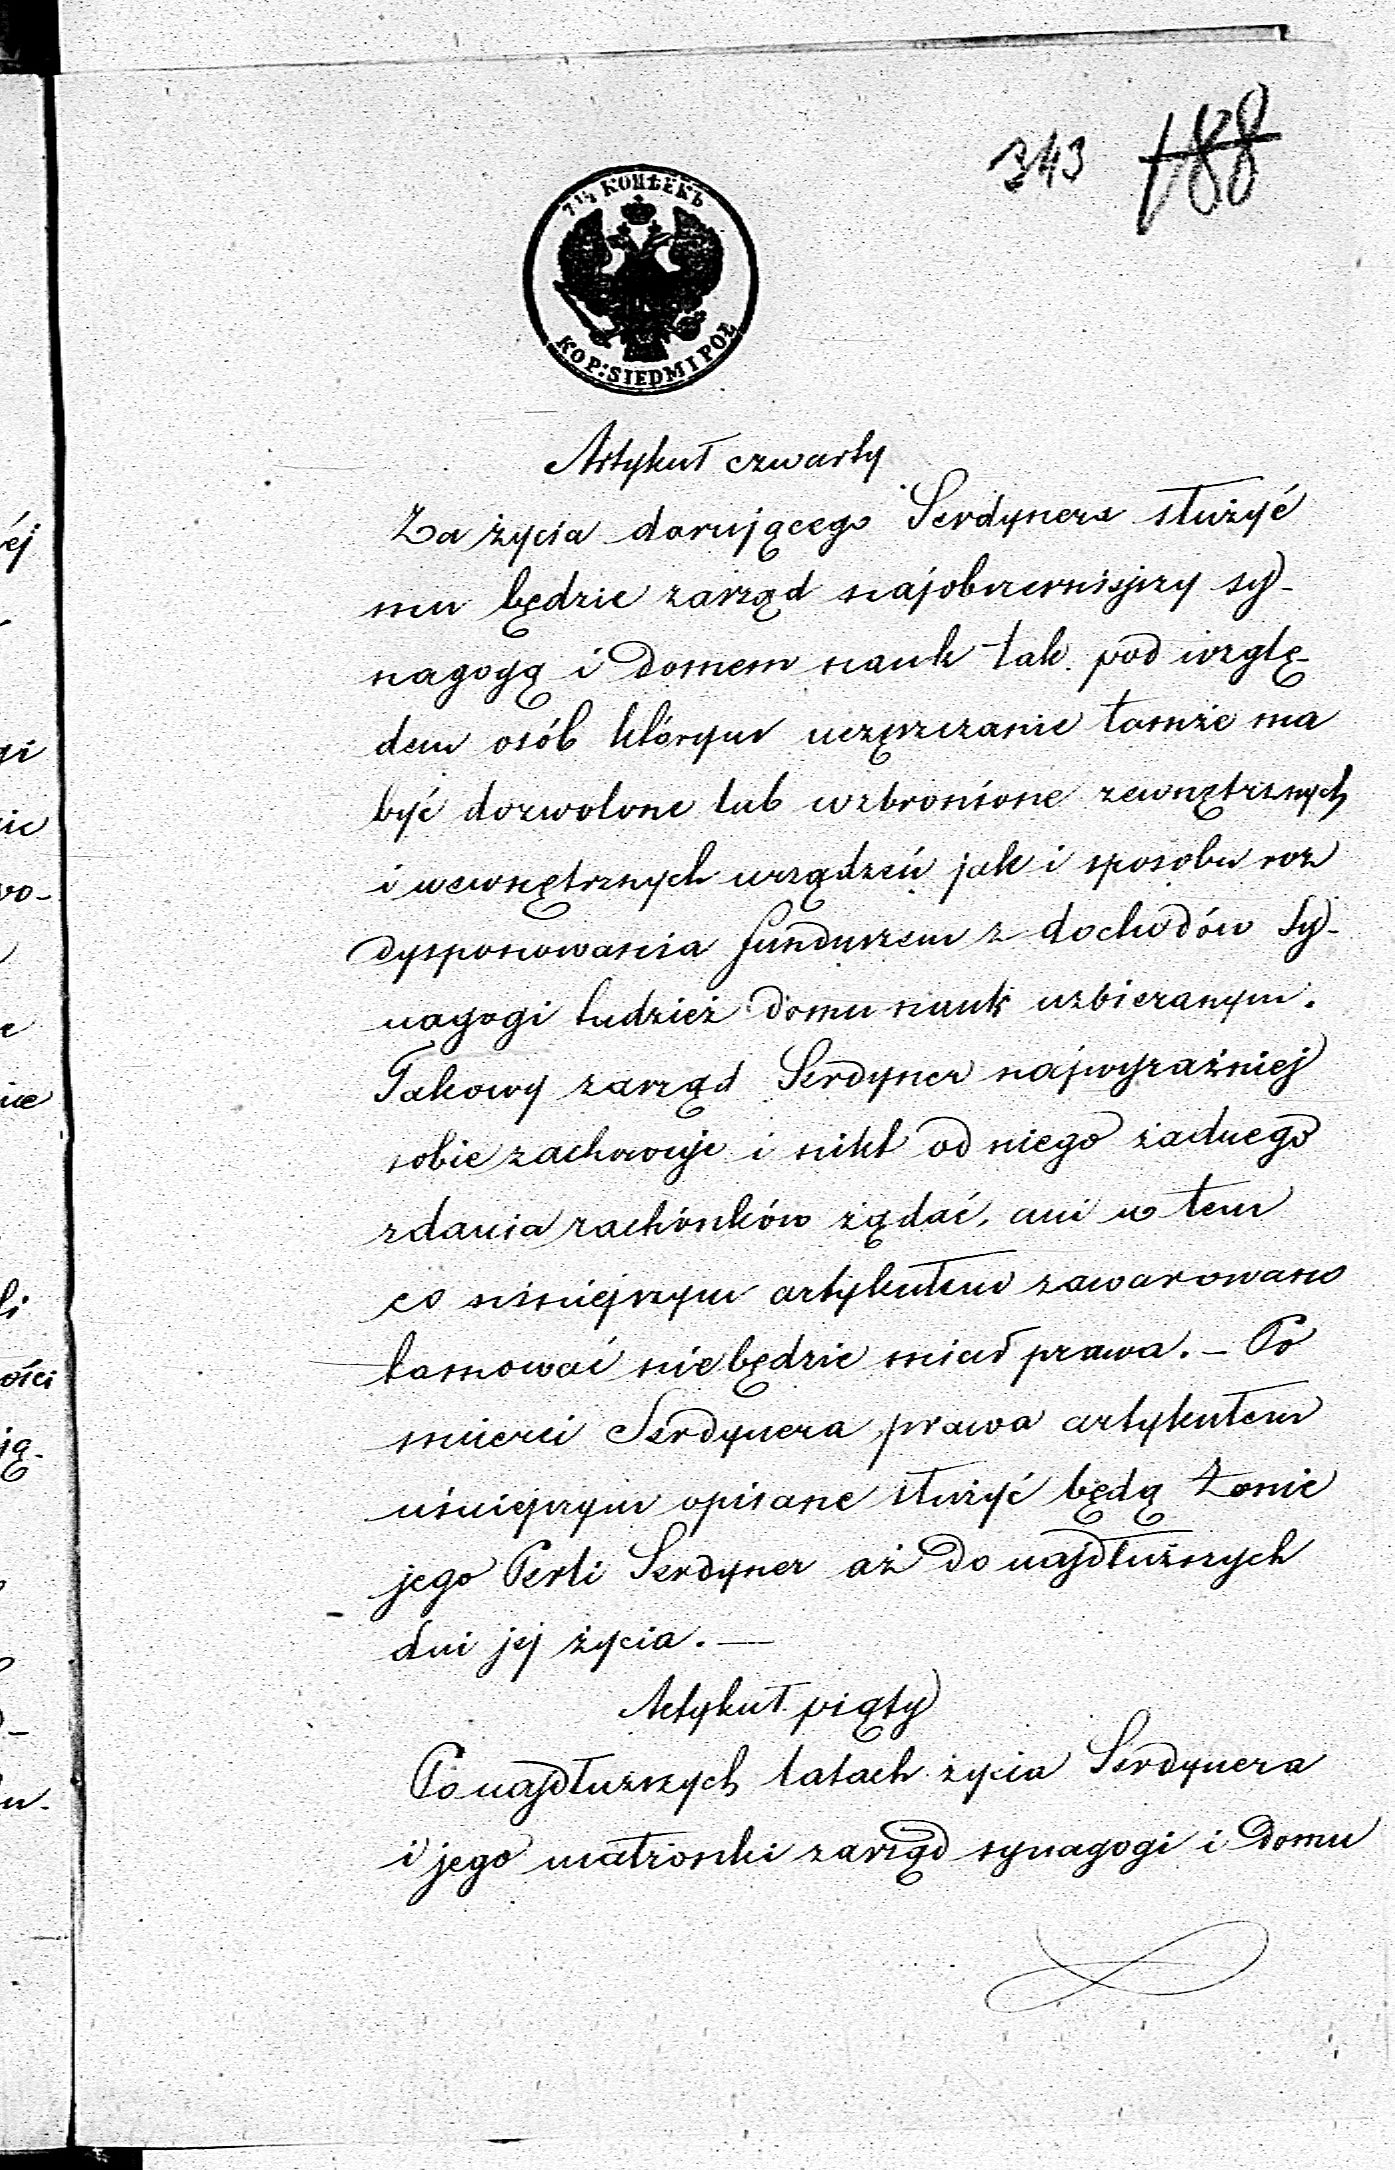 343 188
7 1/2 КОПѢЕКЪ
KOP: SIEDM I PÓŁ
Artykuł czwarty
Za życia darującego Serdynera służyć
mu będzie zarząd najobszerniejszy sy-
nagogą i domem nauk tak pod wzglę-
dem osób którym uczęszczanie tamże ma
być dozwolone lub wzbronione zewnętrznych
i wewnętrznych urządzeń jak i sposobu roz
dysponowania funduszem z dochodów Sy-
nagogi tudzież domu nauk uzbieranym.
Takowy zarząd Serdyner najwyraźniej
sobie zachowuje i nikt od niego żadnego
zdania rachónków żądać, ani w tem
co niniejszym artykułem zawarowano
tamować nie będzie miał prawa. – Po
śmierci Serdynera prawa artykułem
niniejszym opisane służyć będą Żonie
jego Perli Serdyner aż do najdłuższych
dni jej życia. —
Artykuł piąty
Po najdłuższych latach życia Serdynera
i jego małżonki zarząd synagogi i domu
éj
gi
nie
wo-
nie
li
ości
ją-